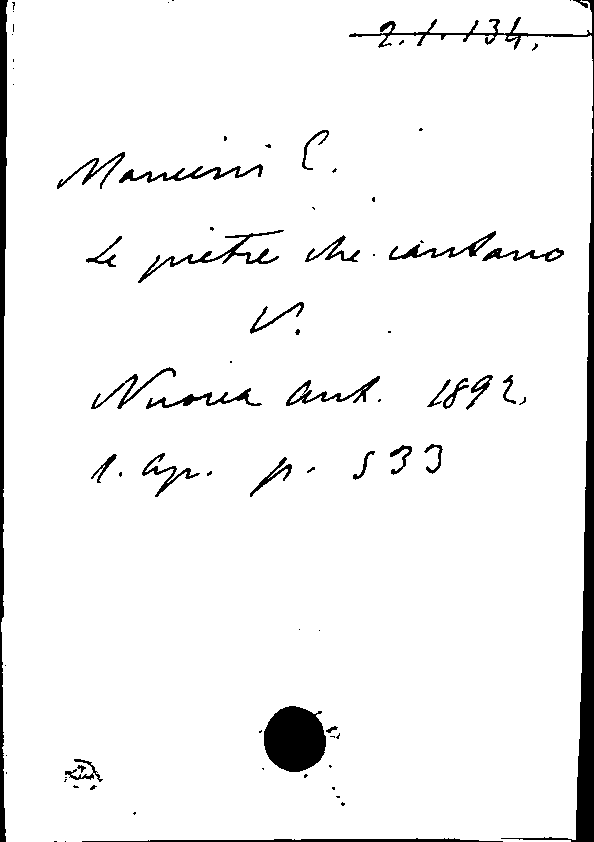 2.1.134.
Mancini E.
Le pietre che cantano
V.
Nuova Ant. 1892,
1. Ap. p. 533